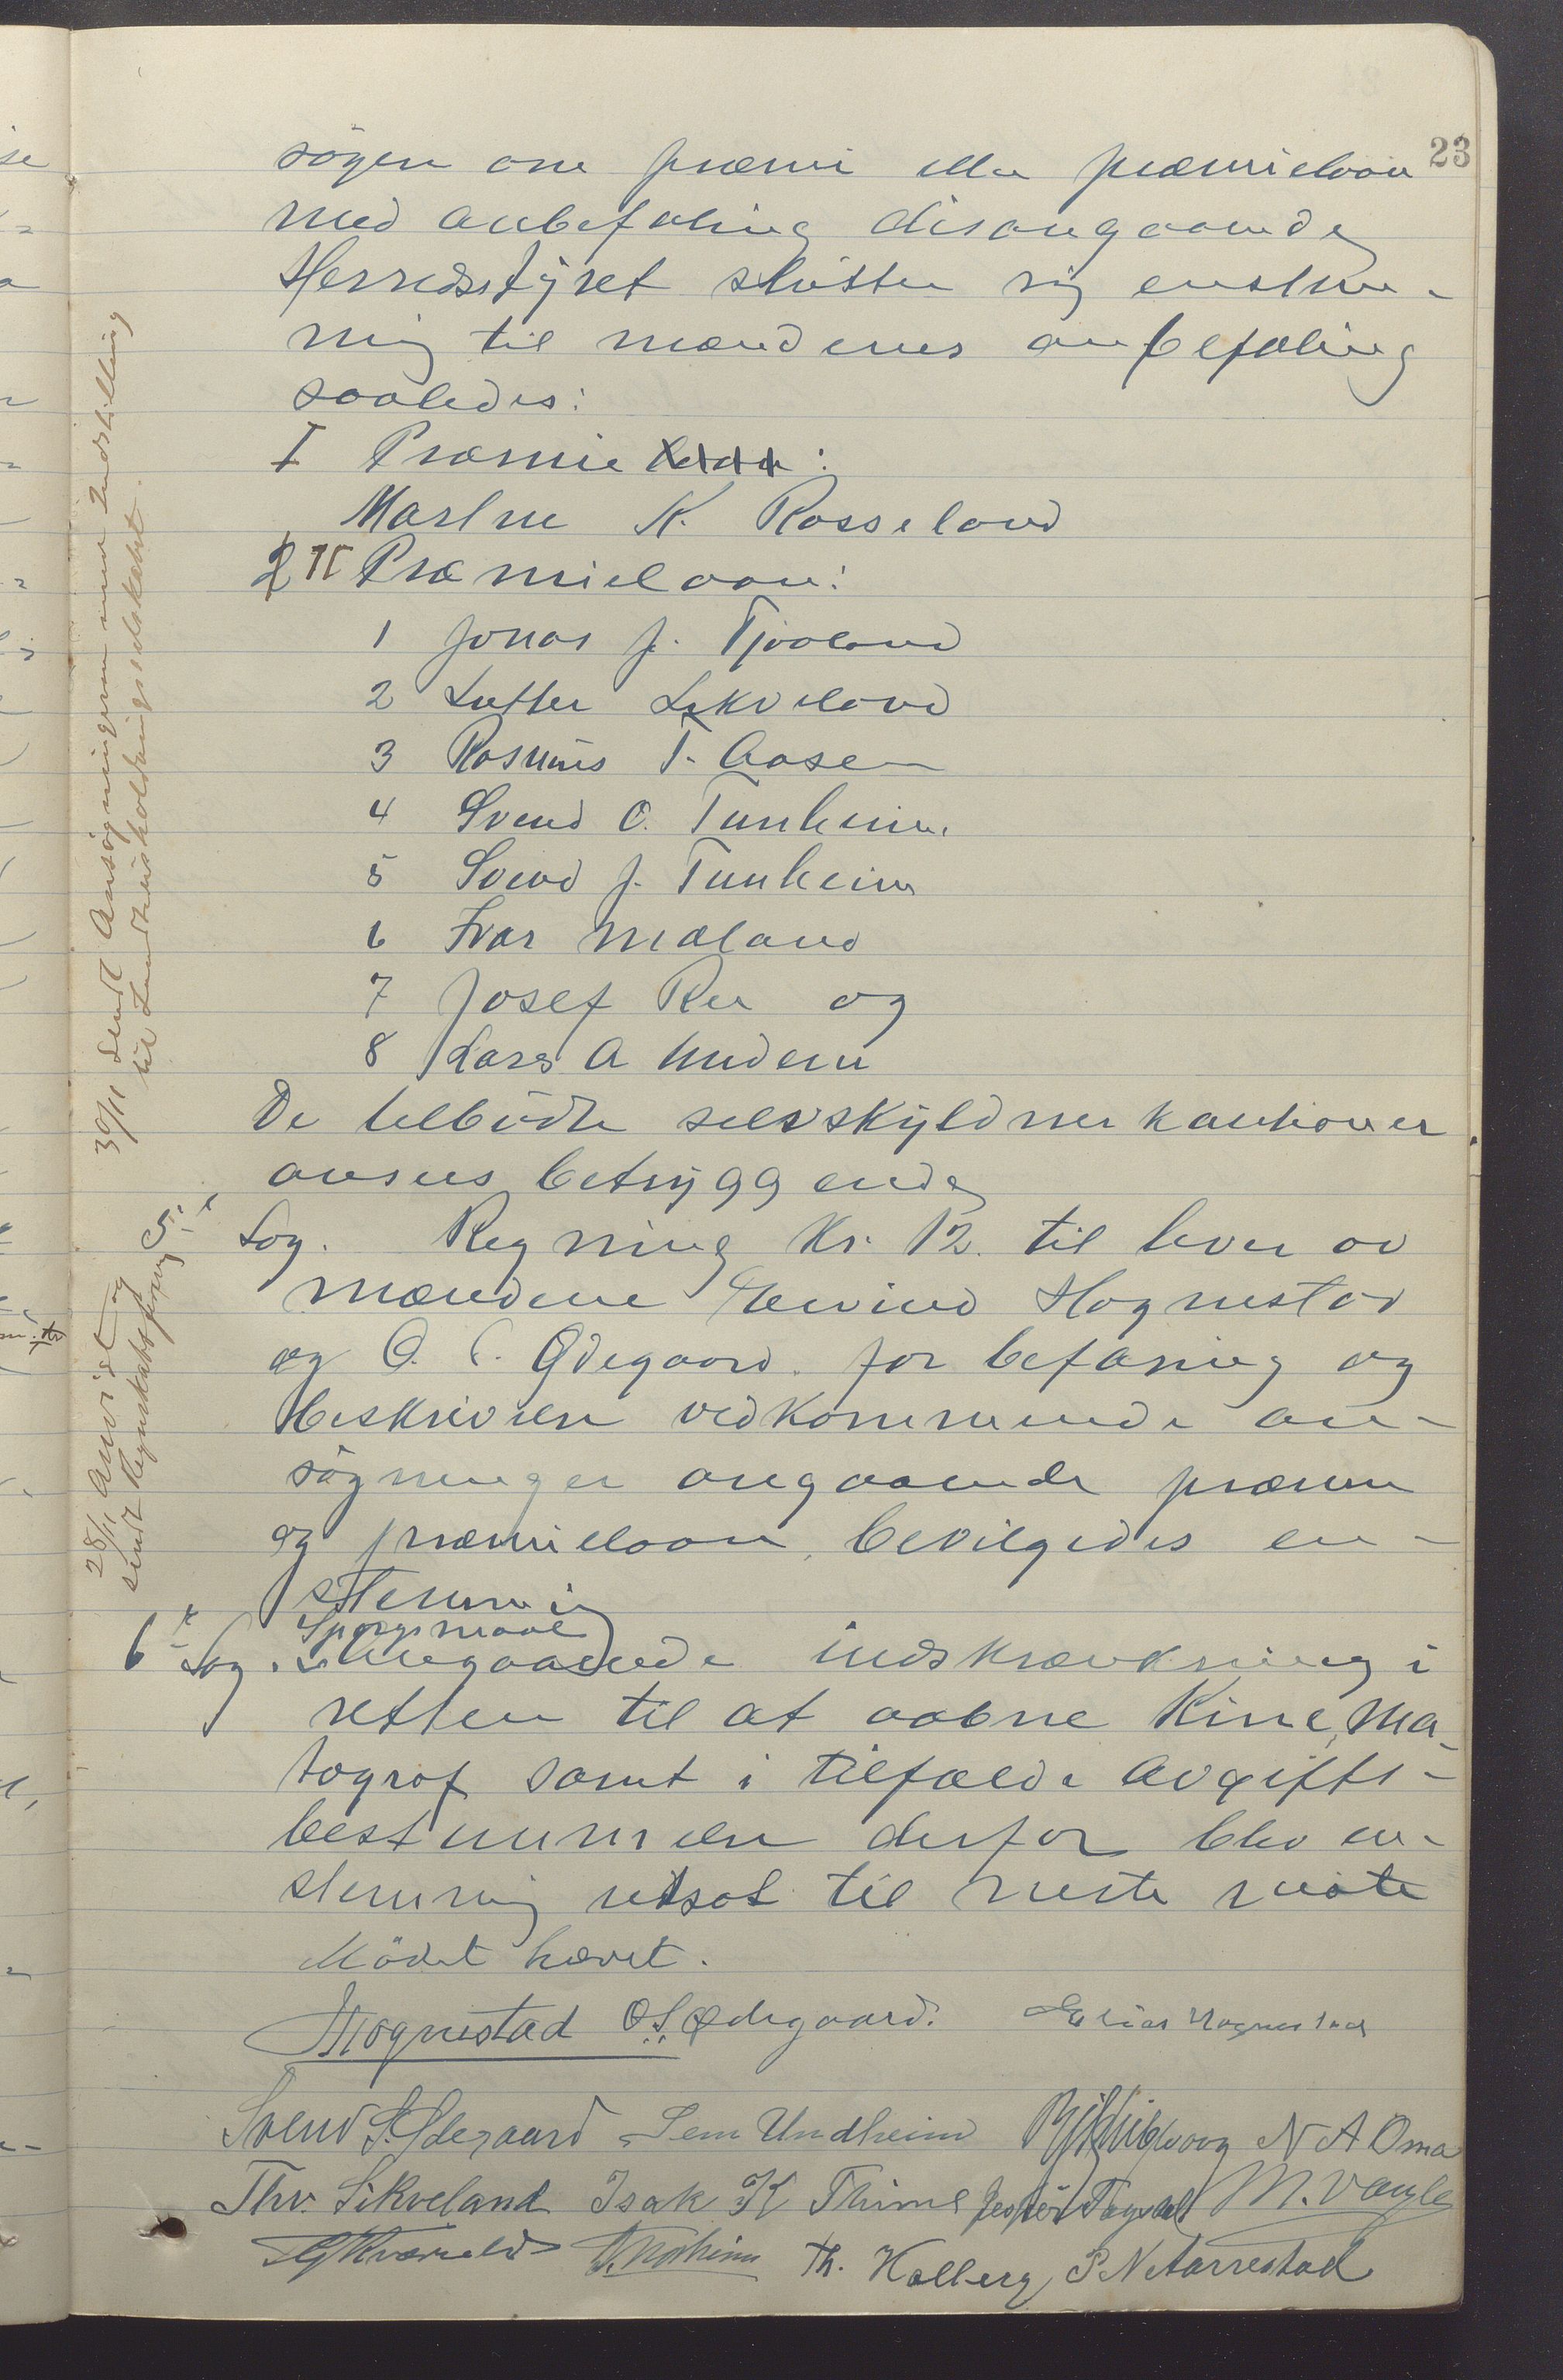 23
søgen om præmi eller præmielaan
med anbefaling disangaaende
Herredsstyret slutter sig enstem-
mig til mændenes anbefaling
saaledes:
I Præmie laan:
K. Rosseland
2 II Præmielaan:
1 Jonas J. Tjaaland
2 Lutter Sikveland
3 Rasmus T. Aasen
4 Svend O. Tunheim
5 Svend J. Tunheim
6 Ivar Mæland
7 Josef Ree og
8 Lars A Undem
De tilbudte selvskyldner kautioner
ansees betryggende
30/11 Sendt Ansøgningerne med Indstilling
til Landhusholdningsselskabet.
5te
Sag. Regning Kr. 12. til hver av
mændene Eivind Hognestad
og O. S. Ødegaard for befaring og
beskrivelse vedkommende an-
søgninger angaaende præmie
og præmielaan, bevilgedes en-
stemmig
28/11 Anvist og
sendt Regnskabsfører
6te Sag. Spørgsmaal
Angaaende indskrænkning i
retten til at aabne Kinema-
tograf samt i tilfælde avgifts-
bestemmelse derfor blev en-
stemmig utsat til næste møte
Mødet hævet.
Hognestad O S Ødegaard. Elias Hognestad
Svend S. Ødegaard Sem Undheim N A Oma
Thv. Sikveland Isak K Thime Jesper Taksdal M. Vagle
Kværneland Th. Kalberg P. N Aarrestad